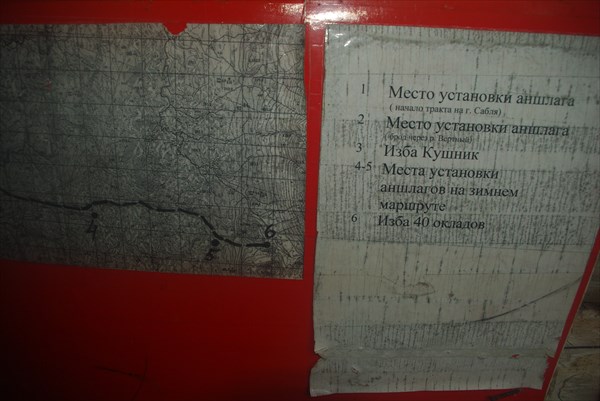 4
5
6
1 Место установки аншлага
( начало тракта на г. Сабля)
2 Место установки аншлага
( брод через р. Вертный)
3 Изба Кушник
4-5 Места установки
аншлагов на зимнем
маршруте
6 Изба 40 окладов